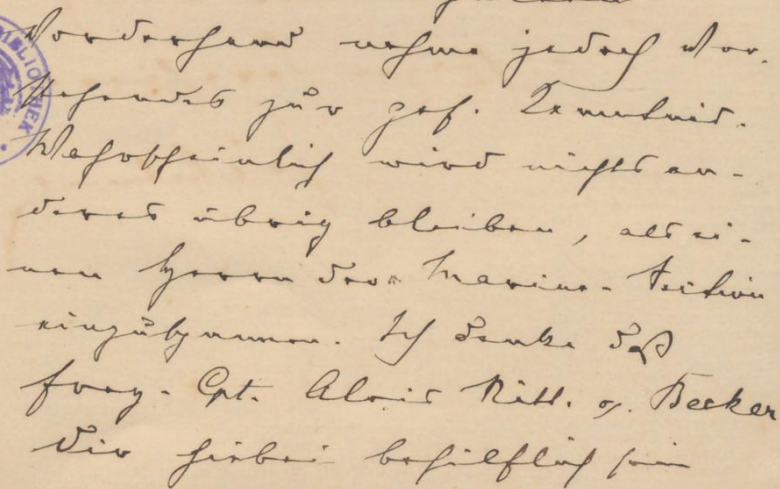 Vorderhand nehme jedoch Vor-
stehendes zur gef. Kenntnis.
Wahrscheinlich wird nichts an-
deres übrig bleiben, als ei-
nen Herrn der Marine-Section
einzuspannen. Ich denke daß
Freg. Cpt. Alois Ritt. v. Becker
dir hiebei behilflich sein